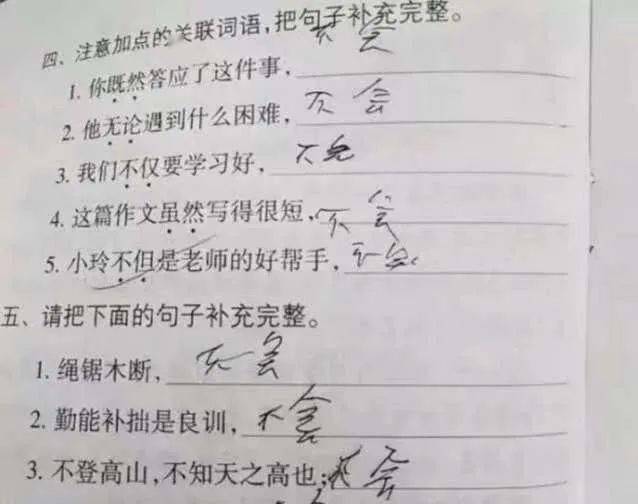 四、注意加点的关联词语,把句子补充完整。
1. 你既然答应了这件事,不会
2. 他无论遇到什么困难,不会
3. 我们不仅要学习好,不会
4. 这篇作文虽然写得很短,不会
5. 小玲不但是老师的好帮手,不会
五、请把下面的句子补充完整。
1. 绳锯木断,不会
2. 勤能补拙是良训,不会
3. 不登高山,不知天之高也;不会